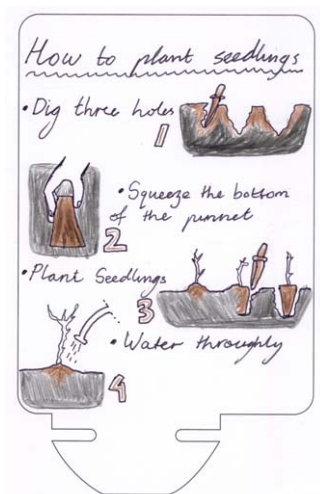 How to plant seedlings
• Dig three holes
1
• Squeeze the bottom
of the punnet
2
• Plant Seedlings
3
• Water throughly
4